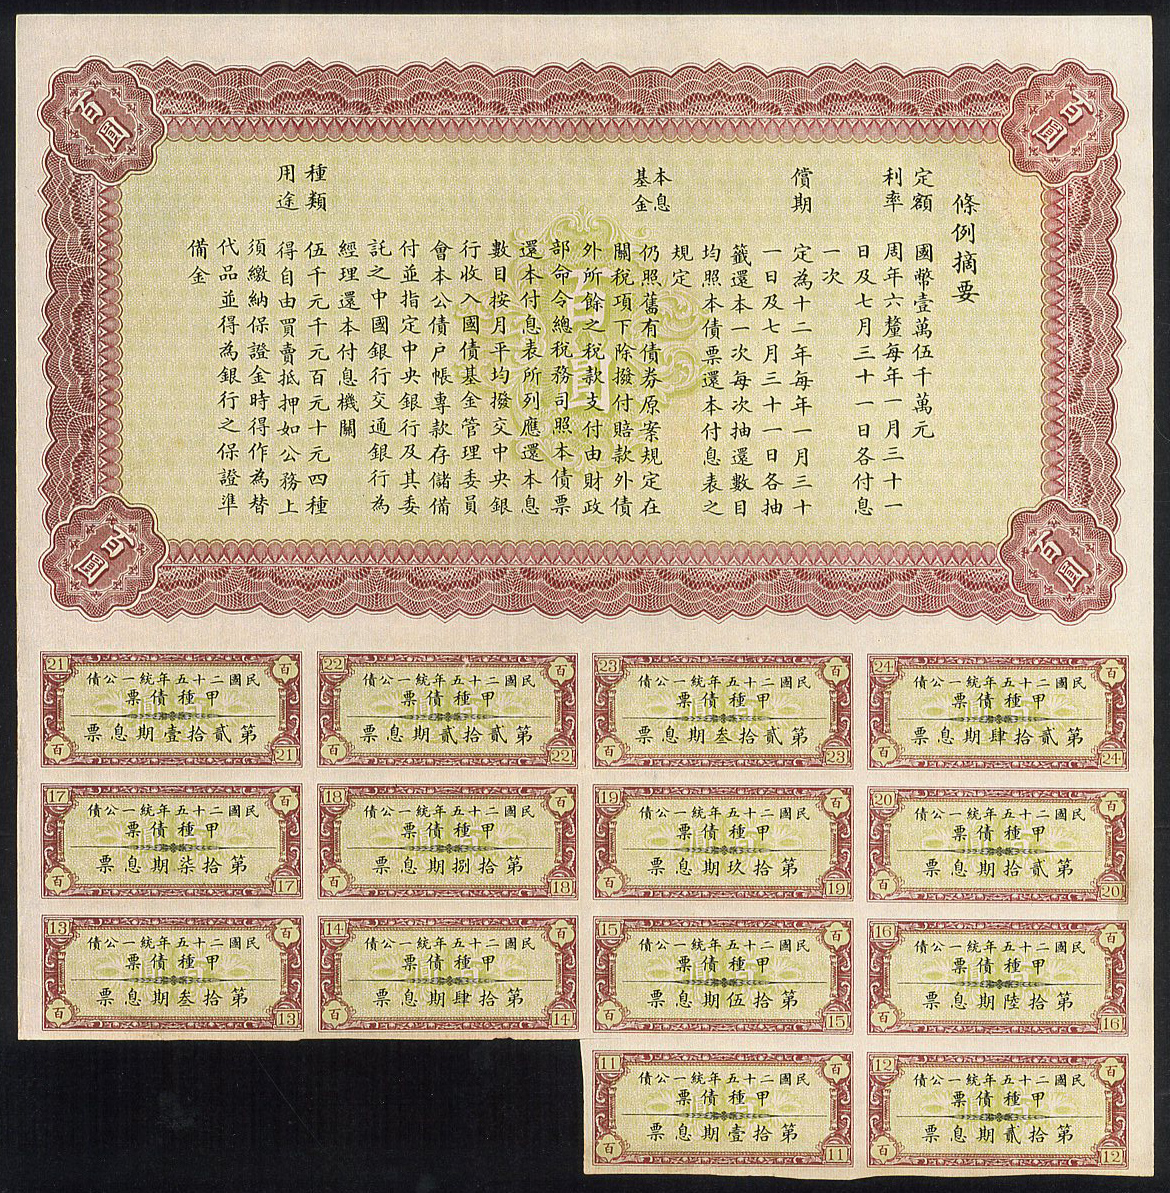 百圓
百圓
條例摘要
定額
國幣壹萬伍千萬元
利率
周年六釐每年一月三十一
日及七月三十一日各付息
一次
償期
定為十二年每年一月三十
一日及七月三十一日各抽
籤還本一次每次抽還數目
均照本債票還本付息表之
規定
本息
基金
仍照舊有債券原案規定在
關稅項下除撥付賠款外債
外所餘之稅款支付由財政
部命令總稅務司照本債票
還本付息表所列應還本息
數目按月平均撥交中央銀
行收入國債基金管理委員
會本公債戶帳專款存儲備
付並指定中央銀行及其委
託之中國銀行交通銀行為
經理還本付息機關
種類
伍千元千元百元十元四種
用途
得自由買賣抵押如公務上
須繳納保證金時得作為替
代品並得為銀行之保證準
備金
百圓
百圓
百圓
21
百
民國二十五年統一公債
甲種債票
第貳拾壹期息票
百
21
22
百
民國二十五年統一公債
甲種債票
第貳拾貳期息票
百
22
23
百
民國二十五年統一公債
甲種債票
第貳拾叁期息票
百
23
24
百
民國二十五年統一公債
甲種債票
第貳拾肆期息票
百
24
17
百
民國二十五年統一公債
甲種債票
第拾柒期息票
百
17
18
百
民國二十五年統一公債
甲種債票
第拾捌期息票
百
18
19
百
民國二十五年統一公債
甲種債票
第拾玖期息票
百
19
20
百
民國二十五年統一公債
甲種債票
第貳拾期息票
百
20
13
百
民國二十五年統一公債
甲種債票
第拾叁期息票
百
13
14
百
民國二十五年統一公債
甲種債票
第拾肆期息票
百
14
15
百
民國二十五年統一公債
甲種債票
第拾伍期息票
百
15
16
百
民國二十五年統一公債
甲種債票
第拾陸期息票
百
16
11
百
民國二十五年統一公債
甲種債票
第拾壹期息票
百
11
12
百
民國二十五年統一公債
甲種債票
第拾貳期息票
百
12